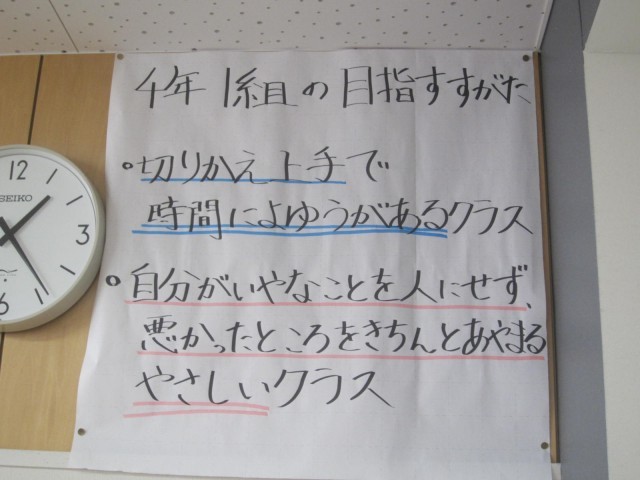 4年1組の目指すすがた
・切りかえ上手で
時間によゆうがあるクラス
・自分がいやなことを人にせず、
悪かったところをきちんとあやまる
やさしいクラス
12
1
2
3
4
5
6
SEIKO